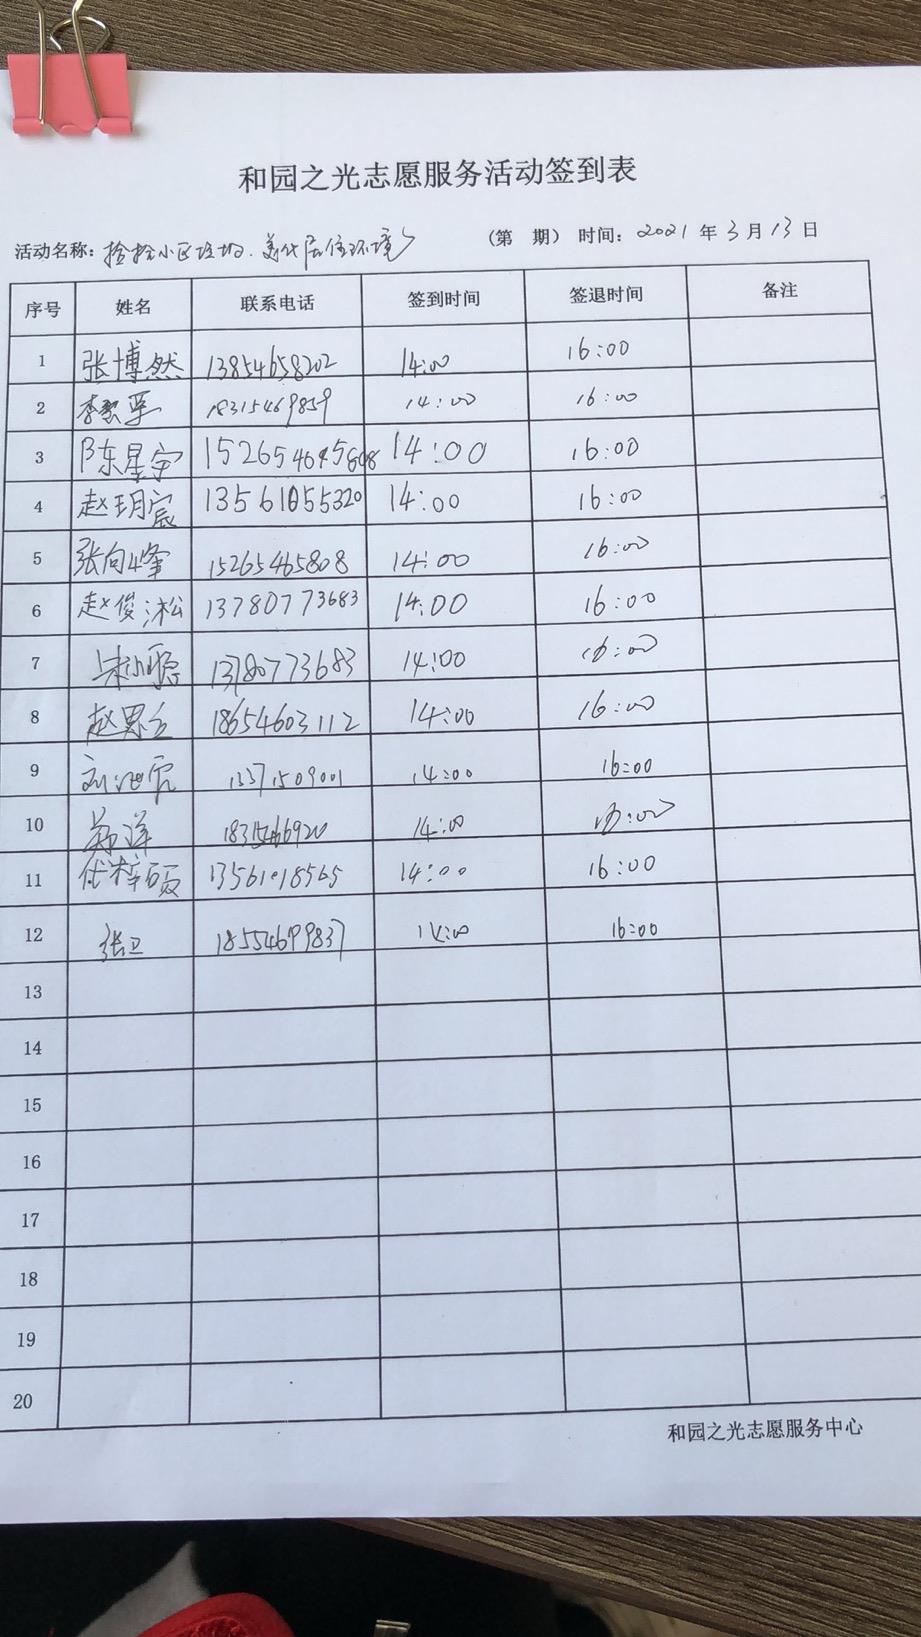 和园之光志愿服务活动签到表
活动名称：捡拾小区垃圾.美化居住环境 （第 期） 时间：2021 年 3 月 13 日
序号 姓名 联系电话 签到时间 签退时间 备注
1 张博然 13854658202 14:00 16:00
2 18315469859 14:00 16:00
3 陈星宇 14:00 16:00
4 赵玥宸 13561055320 14:00 16:00
5 张向峰 15265465808 14:00 16:00
6 赵俊淞 13780773683 14:00 16:00
7 13780773683 14:00 16:00
8 18654603112 14:00 16:00
9 13371509001 14:00 16:00
10 郑洋 14:00 16:00
11 13561018565 14:00 16:00
12 张卫 18554699837 14:00 16:00
13
14
15
16
17
18
19
20
和园之光志愿服务中心